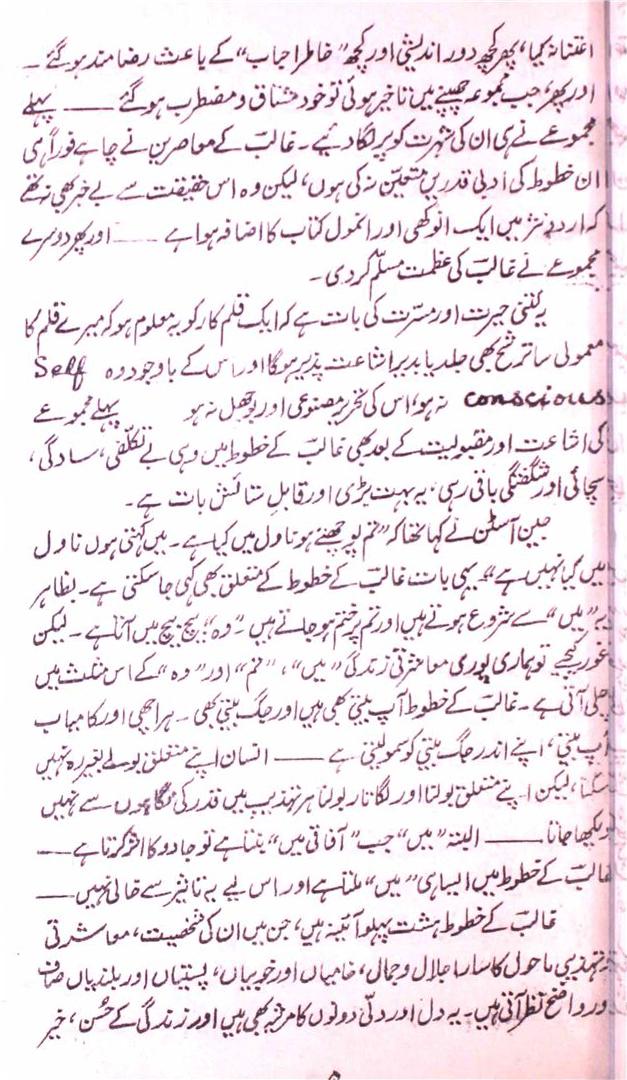 اعتنا نہ کیا، پھر کچھ دور اندیشی اور کچھ ”خاطر احباب“ کے باعث رضامند ہو گئے۔
اور پھر جب مجموعہ چھپنے میں تاخیر ہوئی تو خود مشتاق و مضطرب ہو گئے ـــــ پہلے
مجموعے نے ہی ان کی شہرت کو پر لگا دیے۔ غالب کے معاصرین نے چاہے فوراً ہی
ان خطوط کی ادبی قدریں متعین نہ کی ہوں، لیکن وہ اس حقیقت سے بے خبر بھی نہ تھے
کہ اردو نثر میں ایک انوکھی اور انمول کتاب کا اضافہ ہوا ہے ـــــ اور پھر دوسرے
مجموعے نے غالبؔ کی عظمت مسلّم کر دی۔
یہ کتنی حیرت اور مسرّت کی بات ہے کہ ایک قلم کار کو یہ معلوم ہو کہ میرے قلم کا
معمولی سا ترشح بھی جلد یا بدیر اشاعت پذیر ہوگا اور اس کے باوجود وہ Self
conscious نہ ہو، اس کی تحریر مصنوعی اور بوجھل نہ ہو پہلے مجموعے
کی اشاعت اور مقبولیت کے بعد بھی غالبؔ کے خطوط میں وہی بے تکلّفی، سادگی،
سچائی اور شگفتگی باقی رہی، یہ بہت بڑی اور قابلِ ستائش بات ہے۔
جین آسٹن نے کہا تھا کہ ”تم پوچھتے ہو ناول میں کیا ہے۔ میں کہتی ہوں ناول
میں کیا نہیں ہے“ یہی بات غالبؔ کے خطوط کے متعلق بھی کہی جا سکتی ہے۔ بظاہر
یہ ”میں“ سے شروع ہوتے ہیں اور تم پر ختم ہو جاتے ہیں۔ ”وہ“ بیچ بیچ میں آتا ہے۔ لیکن
غور کیجیے تو ہماری پوری معاشرتی زندگی ”میں“، ”تم“ اور ”وہ“ کے اس مثلث میں
چلی آتی ہے۔ غالبؔ کے خطوط آپ بیتی بھی ہیں اور جگ بیتی بھی۔ ہر اچھی اور کامیاب
آپ بیتی، اپنے اندر جگ بیتی کو سمو لیتی ہے ـــــ انسان اپنے متعلق بولے بغیر رہ نہیں
سکتا، لیکن اپنے متعلق بولنا اور لگاتار بولنا ہر تہذیب میں قدر کی نگاہوں سے نہیں
دیکھا جاتا ـــــ البتہ ”میں“ جب ”آفاقی میں“ بنتا ہے تو جادو کا اثر کرتا ہے ـــــ
غالبؔ کے خطوط میں ایسا ہی ”میں“ ملتا ہے اور اس لیے یہ تاثیر سے خالی نہیں ـــــ
غالبؔ کے خطوط ہشت پہلو آئینہ ہیں، جن میں ان کی شخصیت، معاشرتی
تہذیبی ماحول کا سارا جلال و جمال، خامیاں اور خوبیاں، پستیاں اور بلندیاں صاف
اور واضح نظر آتی ہیں۔ یہ دل اور دلّی دونوں کا مرثیہ بھی ہیں اور زندگی کے حُسن، خیر